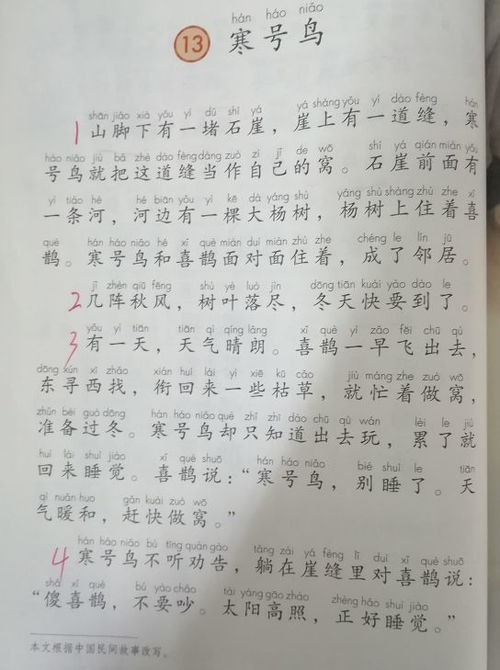 hán háo niǎo
13 寒号鸟
shān jiǎo xià yǒu yì dǔ shí yá yá shàng yǒu yí dào fèng
1 山脚下有一堵石崖，崖上有一道缝，寒
háo niǎo jiù bǎ zhè dào fèng dàng zuò zì jǐ de wō shí yá qián miàn yǒu
号鸟就把这道缝当作自己的窝。石崖前面有
yì tiáo hé hé biān yǒu yì kē dà yáng shù yáng shù shàng zhù zhe xǐ
一条河，河边有一棵大杨树，杨树上住着喜
què hán háo niǎo hé xǐ què miàn duì miàn zhù zhe chéng le lín jū
鹊。寒号鸟和喜鹊面对面住着，成了邻居。
jǐ zhèn qiū fēng shù yè luò jìn dōng tiān kuài yào dào le
2 几阵秋风，树叶落尽，冬天快要到了。
yǒu yì tiān tiān qì qíng lǎng xǐ què yì zǎo fēi chū qù
3 有一天，天气晴朗。喜鹊一早飞出去，
dōng xún xī zhǎo xián huí lái yì xiē kū cǎo jiù máng zhe zuò wō
东寻西找，衔回来一些枯草，就忙着做窝，
zhǔn bèi guò dōng hán háo niǎo què zhǐ zhī dào chū qù wán lèi le jiù
准备过冬。寒号鸟却只知道出去玩，累了就
huí lái shuì jiào xǐ què shuō hán háo niǎo bié shuì le tiān
回来睡觉。喜鹊说：“寒号鸟，别睡了。天
qì nuǎn huo gǎn kuài zuò wō
气暖和，赶快做窝。”
hán háo niǎo bù tīng quàn gào tǎng zài yá fèng lǐ duì xǐ què shuō
4 寒号鸟不听劝告，躺在崖缝里对喜鹊说：
shǎ xǐ què bú yào chǎo tài yáng gāo zhào zhèng hǎo shuì jiào
“傻喜鹊，不要吵。太阳高照，正好睡觉。”
本文根据中国民间故事改写。